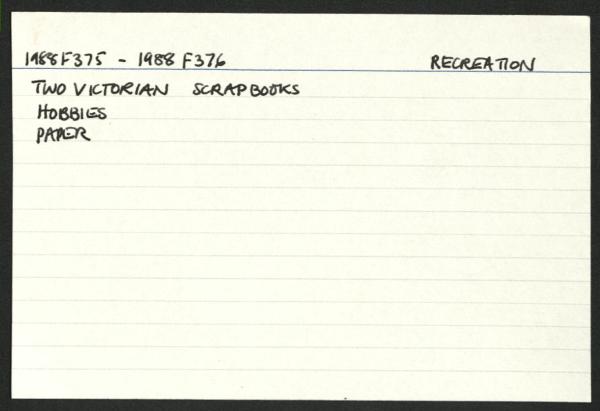 1988F375 - 1988 F376 RECREATION
TWO VICTORIAN SCRAPBOOKS
HOBBIES
PAPER